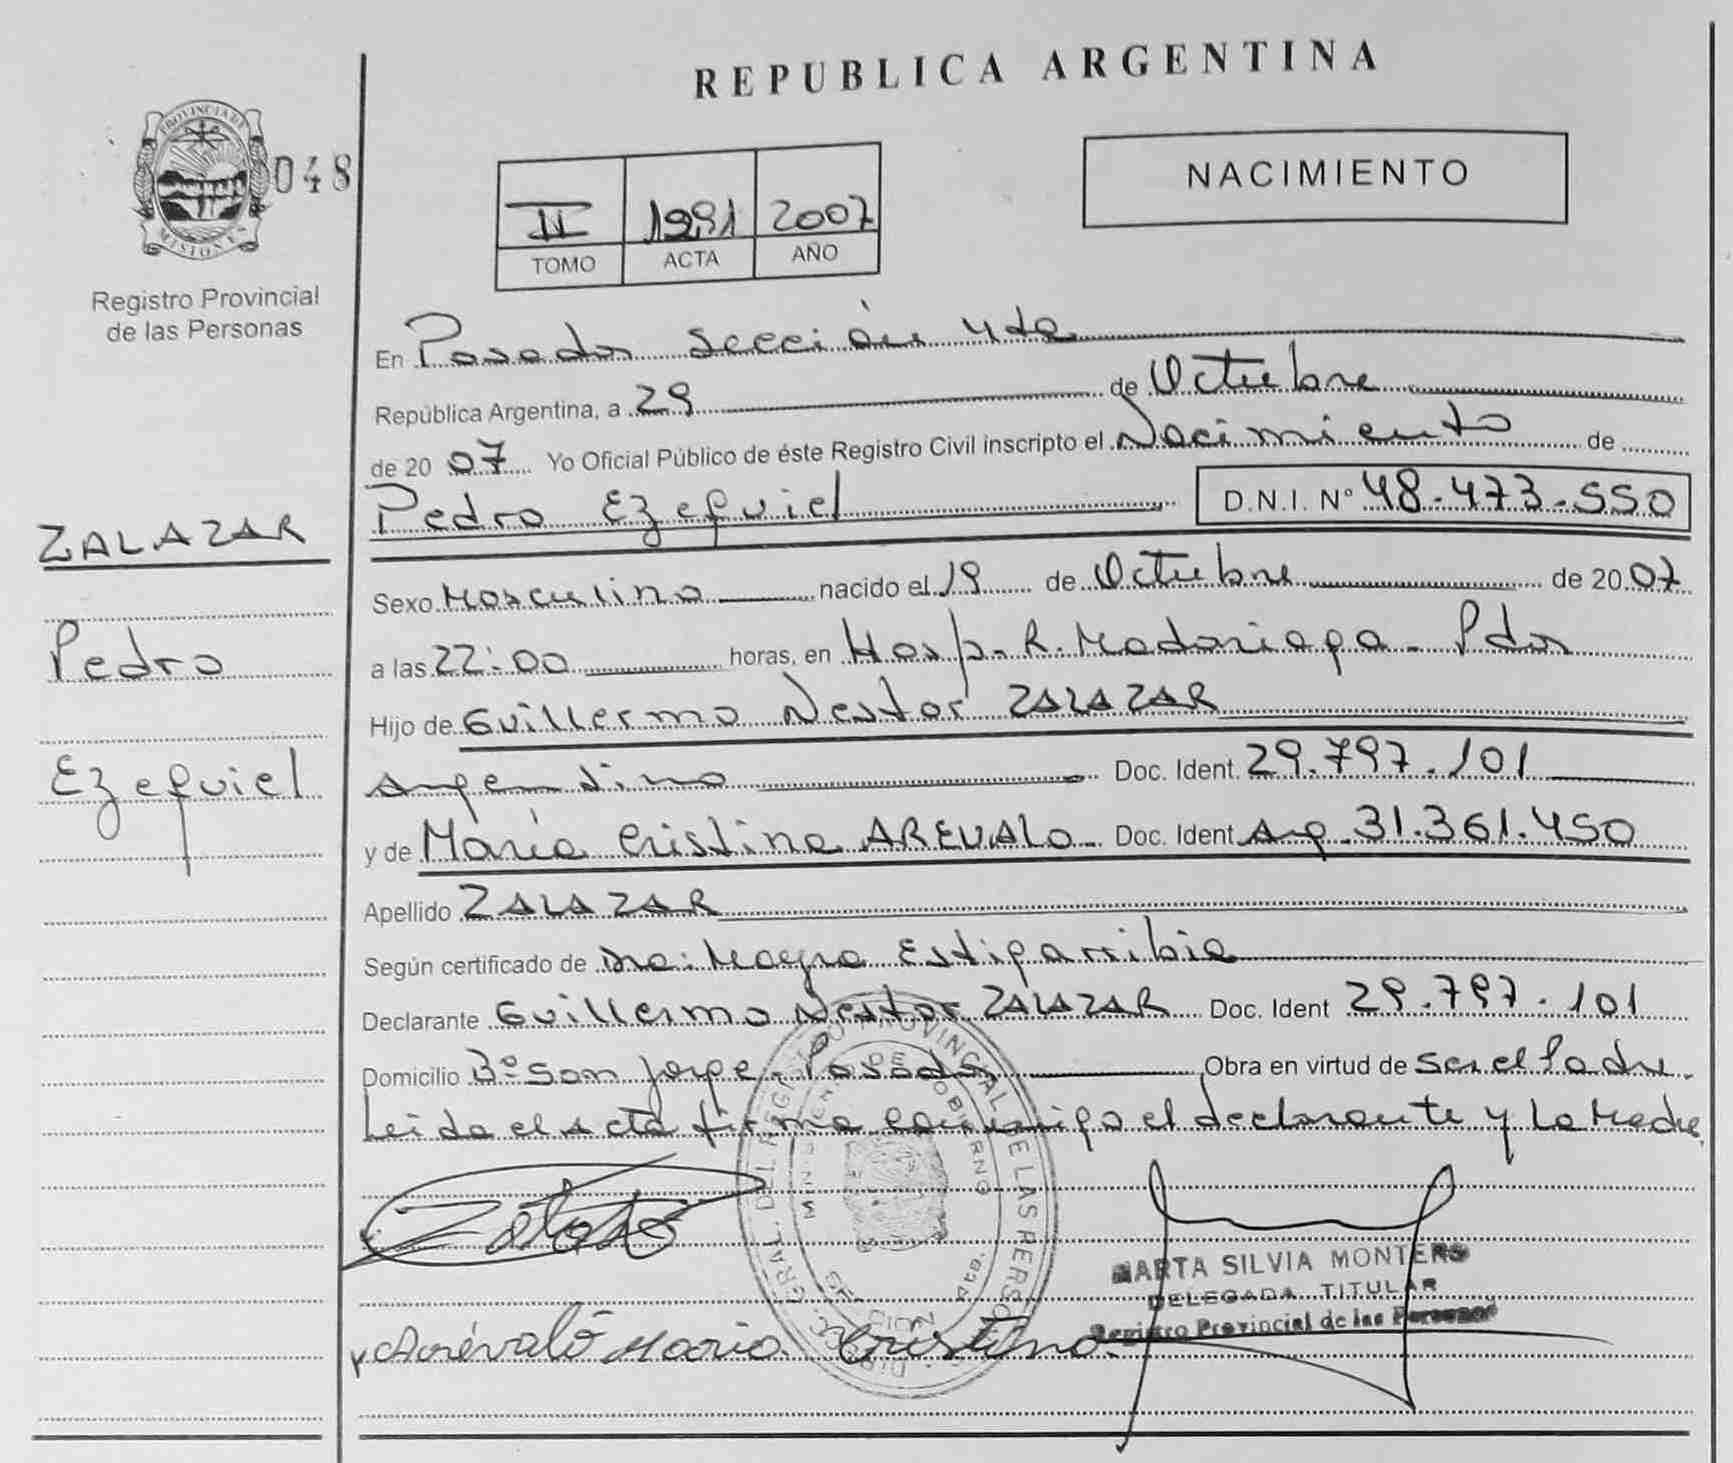 REPUBLICA ARGENTINA
PROVINCIA DE
MISIONES
048
Registro Provincial
de las Personas
NACIMIENTO
II 1291 2007
TOMO ACTA AÑO
En Posadas Sección 4ta
República Argentina, a 29 de Octubre
de 2007 Yo Oficial Público de éste Registro Civil inscripto el Nacimiento de
Pedro Ezequiel D.N.I. Nº 48.473.550
ZALAZAR
Pedro
Ezequiel
Sexo Masculino nacido el 19 de Octubre de 2007
a las 22:00 horas, en Hosp. R. Madariaga - Pdas
Hijo de Guillermo Nestor ZALAZAR
Argentino Doc. Ident. 29.797.101
y de María Cristina AREVALO Doc. Ident Arg. 31.361.450
Apellido ZALAZAR
Según certificado de Dra: Mayra Estigarribia
Declarante Guillermo Nestor ZALAZAR Doc. Ident 29.797.101
Domicilio Bº San Jorge - Posadas Obra en virtud de Ser el Padre
Leida el acta firma conmigo el declarante y La Madre
MARTA SILVIA MONTERO
DELEGADA TITULAR
Registro Provincial de las Personas
Arévalo Maria Cristina